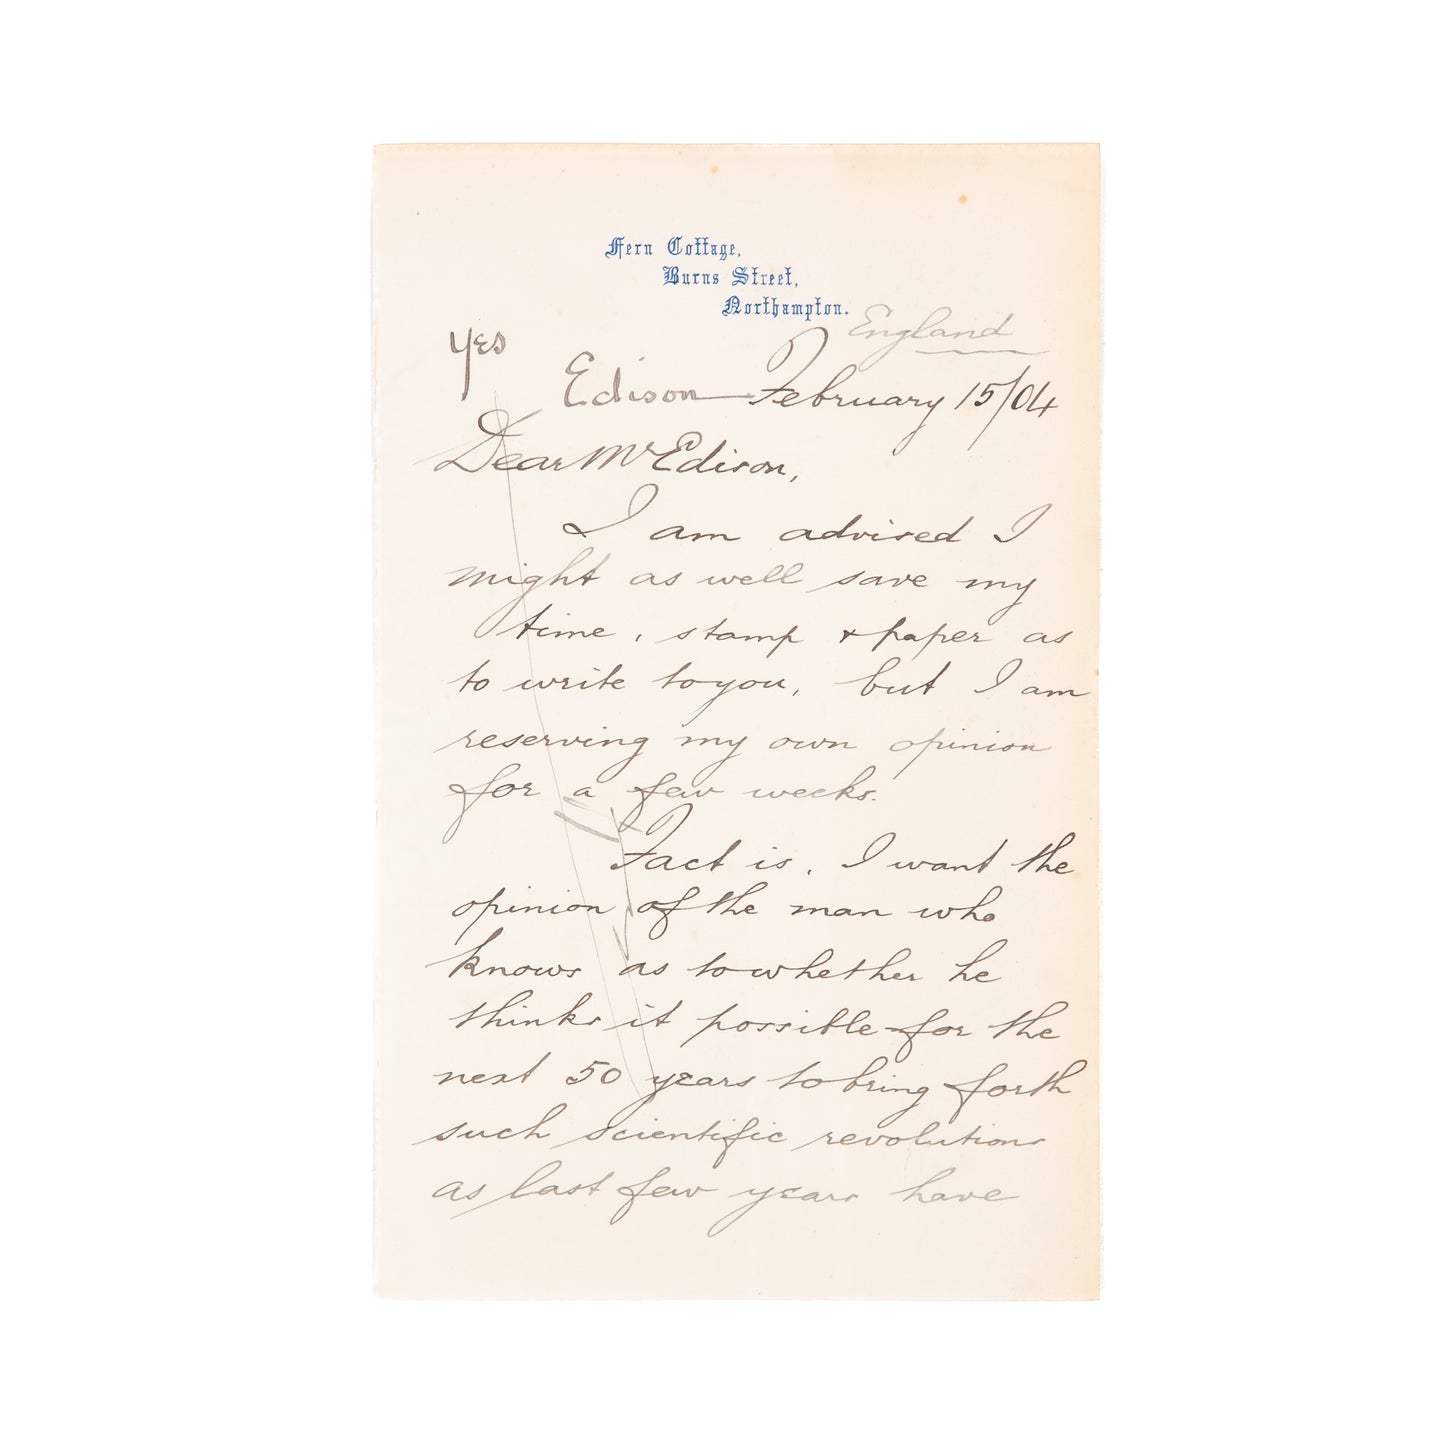 Fern Cottage,
Burns Street,
Northampton.
England
Yes
Edison
February 15/04
Dear Mr Edison,
I am advised I
might as well save my
time, stamp & paper as
to write to you, but I am
reserving my own opinion
for a few weeks.
Fact is, I want the
opinion of the man who
knows as to whether he
thinks it possible for the
next 50 years to bring forth
such scientific revolutions
as last few years have